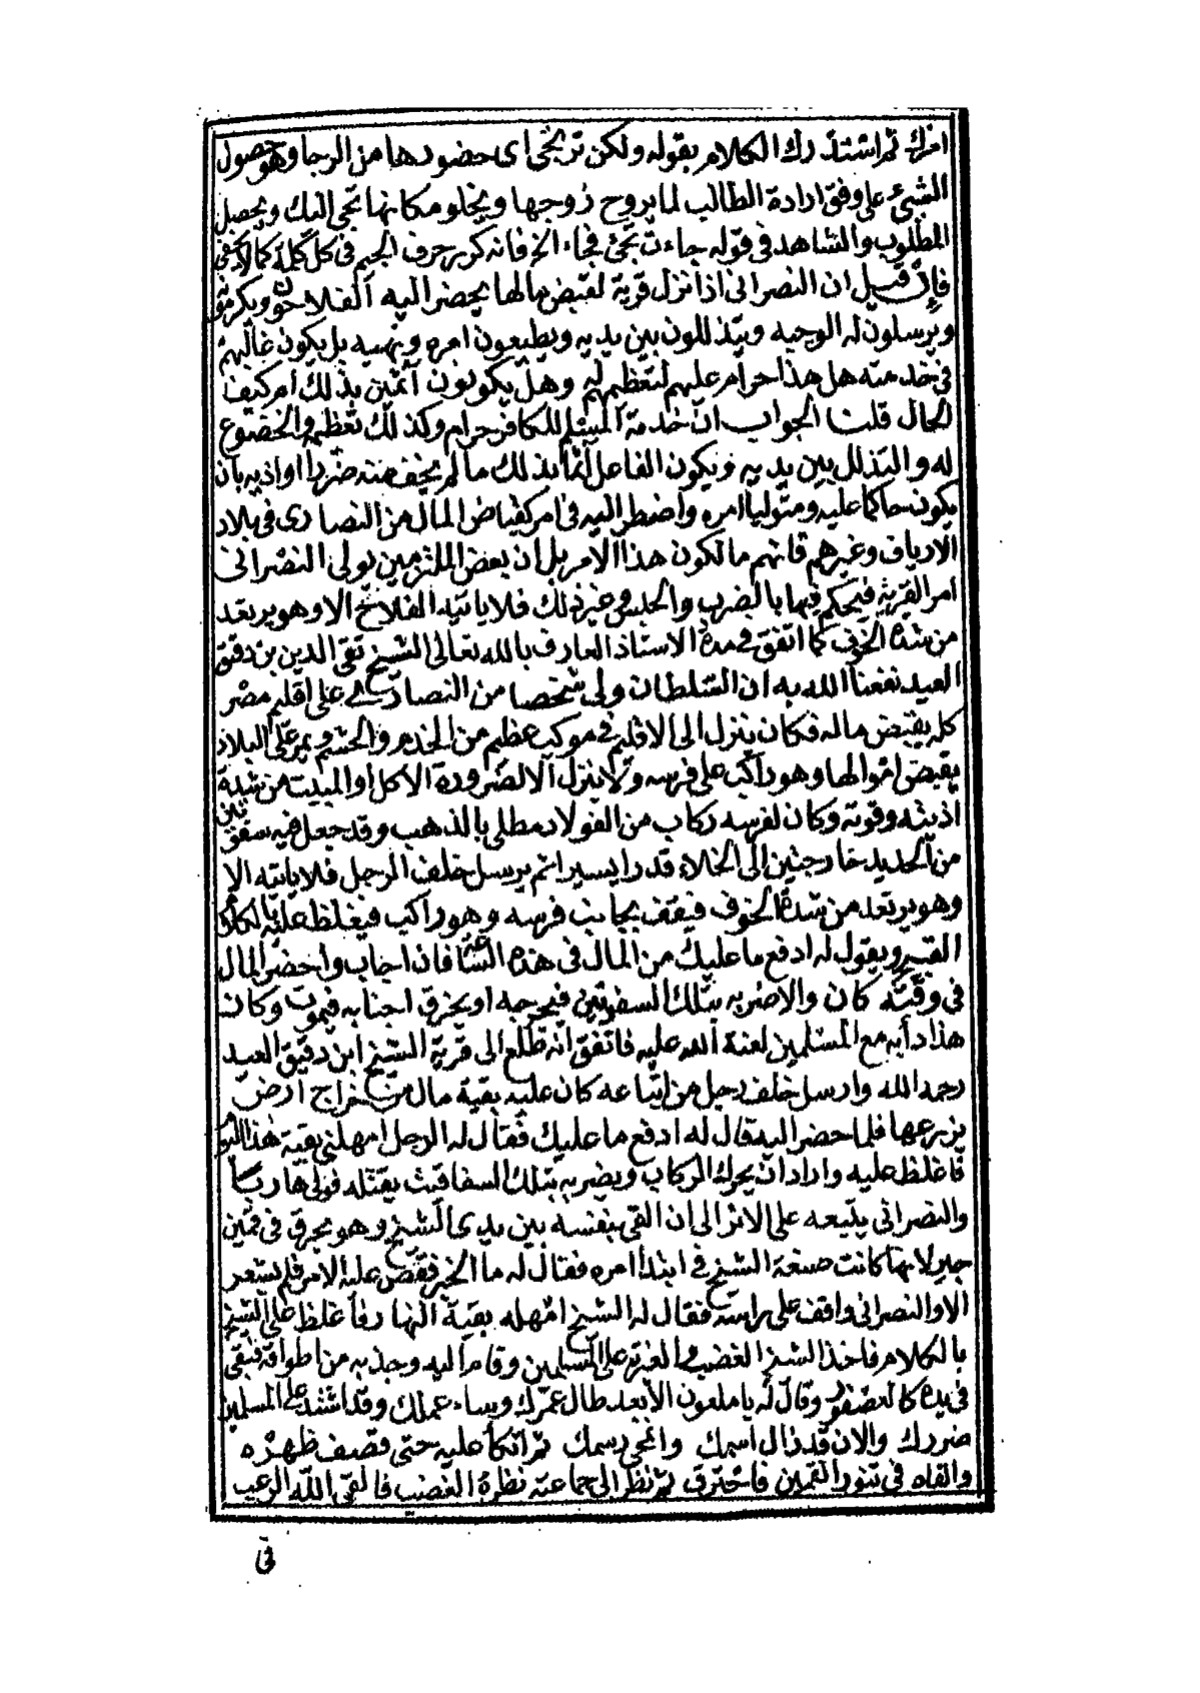 امرك ثم استدرك الكلام بقوله ولكن ترتجي اى حضورها من الرجا وهو حصول
الشيئ على وفق ارادة الطالب لما يروح زوجها ويخلو مكانها تجي اليك ويحصل
المطلوب والشاهد في قوله جاءت تجئ فجاء الخ فانه كرر حرف الجيم فى كل كلمة كما لا يخفى
فإن قيل ان النصرانى اذا نزل قرية لقبض مالها يحضر اليه الفلاحون ويكرمونه
ويرسلون له الوجبه ويتذللون بين يديه ويطيعون امره ونهيه بل يكون غالبهم
في خدمته هل هذا حرام عليهم لتعظيمهم له وهل يكونون آثمين بذلك ام كيف
الحال قلنا الجواب ان خدمة المسلم للكافر حرام وكذلك تعظيمه والخضوع
له والتذلل بين يديه ويكون الفاعل آثما بذلك ما لم يخف منه ضررا او اذيه بان
يكون حاكما عليه ومتوليا امره واضطر اليه فى امر كقباض المال من النصارى فى بلاد
الارياف وغيرهم فانهم مالكون هذا الامر بل ان بعض الملتزمين يولى النصرانى
امر القرية فيحكم فيها بالضرب والحبس وغير ذلك فلا ياتيه الفلاح الا وهو يرتعد
من شدة الخوف كما اتفق في مدة الاستاذ العارف بالله تعالى الشيخ تقى الدين بن دقيق
العيد نفعنا الله به ان السلطان ولى شخصا من النصارى على اقليم مصر
كله يقبض ماله فكان ينزل الى الاقليم في موكب عظيم من الخدم والحشم ويمر على البلاد
يقبض اموالها وهو راكب على فرسه ولا ينزل الا لضرورة الاكل او المبيت من شدة
اذيته وقوته وكان لفرسه ركاب من الفولاد مطلى بالذهب وقد جعل فيه سفوتين
من الحديد خارجتين الى الخلاء قدرا يسيرا ثم يرسل خلف الرجل فلا ياتيه الا
وهو يرتعد من شدة الخوف فيقف بجانب فرسه وهو راكب فيغلظ عليه بالكلام
القبيح ويقول له ادفع ما عليك من المال فى هذه الساعة فان اجاب واحضر المال
فى وقته كان والا ضربه بتلك السفوتين فيجرحه او يخرق اجنابه فيموت وكان
هذا دأبه مع المسلمين لعنة الله عليه فاتفق انه طلع الى قرية الشيخ ابن دقيق العيد
رحمه الله وارسل خلف رجل من اتباعه كان عليه بقية مال من خراج ارض
يزرعها فلما حضر اليه قال له ادفع ما عليك فقال له الرجل امهلنى بقية هذا اليوم
فاغلظ عليه واراد ان يحرك الركاب ويضربه بتلك السفافيت يقتله فولى هاربا
والنصرانى يتبعه على الاثر الى ان القى بنفسه بين يدى الشيخ وهو يحرق فى قمين
جير لانها كانت صنعة الشيخ في ابتدأ امره فقال له ما الخبر فقص عليه الامر فلم يشعر
الا والنصرانى واقف على راسه فقال له الشيخ امهله بقية النهار فأغلظ على الشيخ
بالكلام فاخذ الشيخ الغضب والغيرة على المسلمين وقام اليه وجذبه من اطواقه فبقى
فى يده كالعصفور وقال له يا ملعون الابعد طال عمرك وساء عملك وقد اشتد على المسلمين
ضررك والان قد زال اسمك وانمحى رسمك ثم اتكأ عليه حتى قصف ظهره
والقاه فى تنور القمين فاحترق ثم نظر الى جماعته نظرة الغضب فالقى الله الرعب
فى